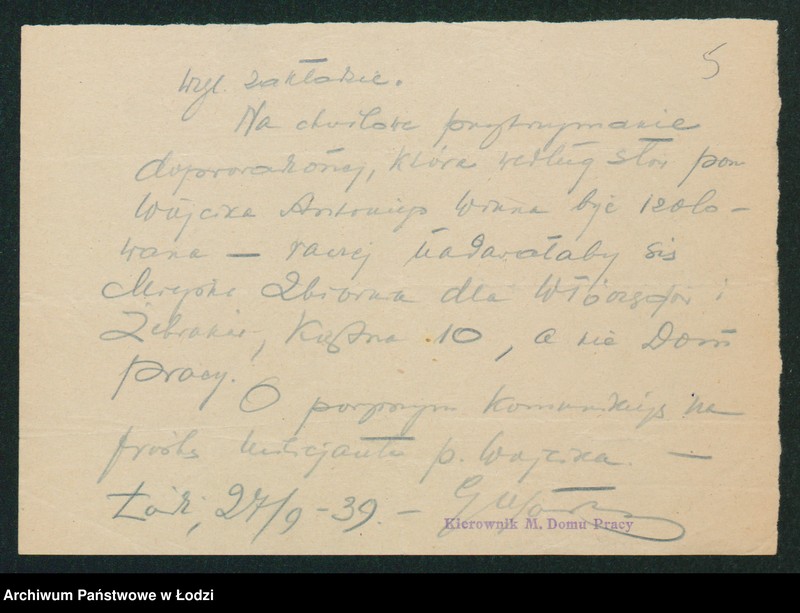 5
wzgl. zakładzie.
Na chwilowe przytrzymanie
doprowadzonej, która według słów pana
Wójcika Antoniego winna być izolo-
wana — raczej nadawałaby się
Miejska Zbiornia dla Włóczęgów i
Żebraków, Kątna 10, a nie Dom
Pracy.
O powyższym komunikuję na
prośbę milicjanta p. Wójcika. —
Łódź, 27/9-39. —
Kierownik M. Domu Pracy
Archiwum Państwowe w Łodzi